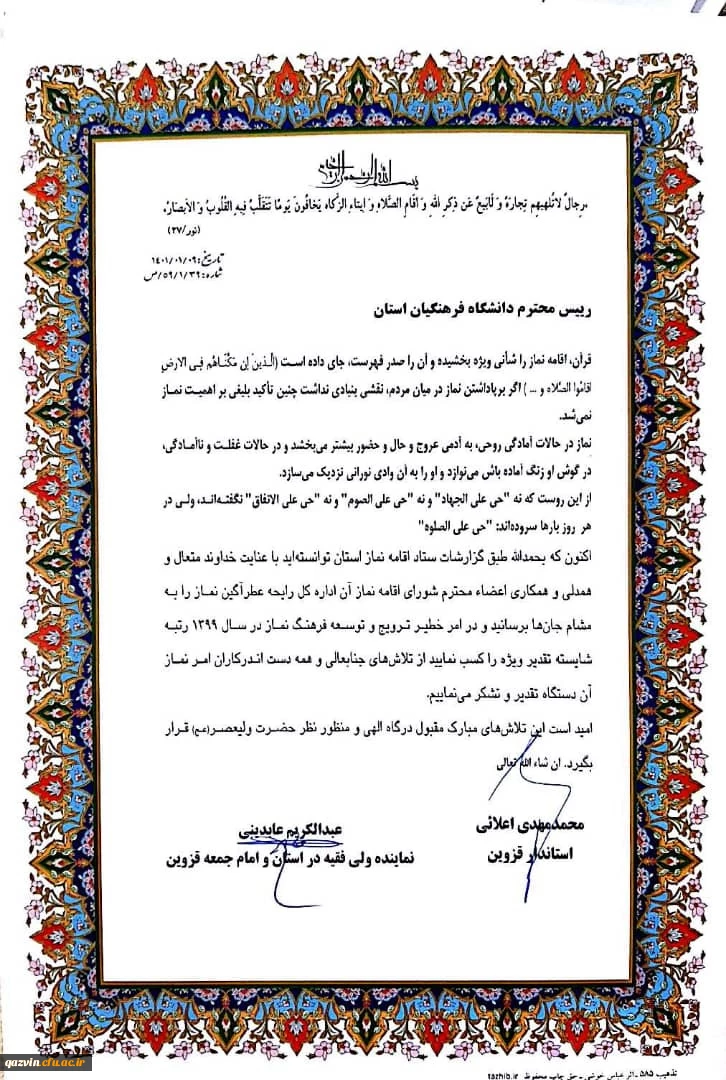 بسم الله الرحمن الرحیم
«رجالٌ لاتُلهیهِم تِجارَهٌ وَ لابَیعٌ عَن ذِکرِ اللهِ وَ اقامِ الصَّلاهِ وَ ایتاءِ الزَّکاه یَخافُونَ یَومًا تَتَقَلَّبُ فیهِ القُلوبُ وَ الاَبصارُ»
(نور/۳۷)
تاریخ: ۱۴۰۱/۰۱/۰۹
شماره: ۵۹/۱/۳۹/ص
رییس محترم دانشگاه فرهنگیان استان
قرآن، اقامه نماز را شأنی ویژه بخشیده و آن را صدر فهرست، جای داده است (الَّذینَ اِن مَکَّنّاهُم فِی الارضِ
اقامُوا الصَّلاه و ... ) اگر برپاداشتن نماز در میان مردم، نقشی بنیادی نداشت چنین تأکید بلیغی بر اهمیت نماز
نمی‌شد.
نماز در حالات آمادگی روحی، به آدمی عروج و حال و حضور بیشتر می‌بخشد و در حالات غفلت و ناآمادگی،
در گوش او زنگ آماده باش می‌نوازد و او را به آن وادی نورانی نزدیک می‌سازد.
از این روست که نه "حی علی الجهاد" و نه "حی علی الصوم" و نه "حی علی الانفاق" نگفته‌اند، ولی در
هر روز بارها سروده‌اند: "حی علی الصلوه"
اکنون که بحمدالله طبق گزارشات ستاد اقامه نماز استان توانسته‌اید با عنایت خداوند متعال و
همدلی و همکاری اعضاء محترم شورای اقامه نماز آن اداره کل رایحه عطرآگین نماز را به
مشام جان‌ها برسانید و در امر خطیر ترویج و توسعه فرهنگ نماز در سال ۱۳۹۹ رتبه
شایسته تقدیر ویژه را کسب نمایید از تلاش‌های جنابعالی و همه دست اندرکاران امر نماز
آن دستگاه تقدیر و تشکر می‌نماییم.
امید است این تلاش‌های مبارک مقبول درگاه الهی و منظور نظر حضرت ولیعصر(عج) قرار
بگیرد. ان شاء الله تعالی
محمدمهدی اعلائی
استاندار قزوین
عبدالکریم عابدینی
نماینده ولی فقیه در استان و امام جمعه قزوین
تذهیب ۵۸۵ ـ اثر عباس خوشی ـ حق چاپ محفوظ tazhib.ir
qazvin.cfu.ac.ir